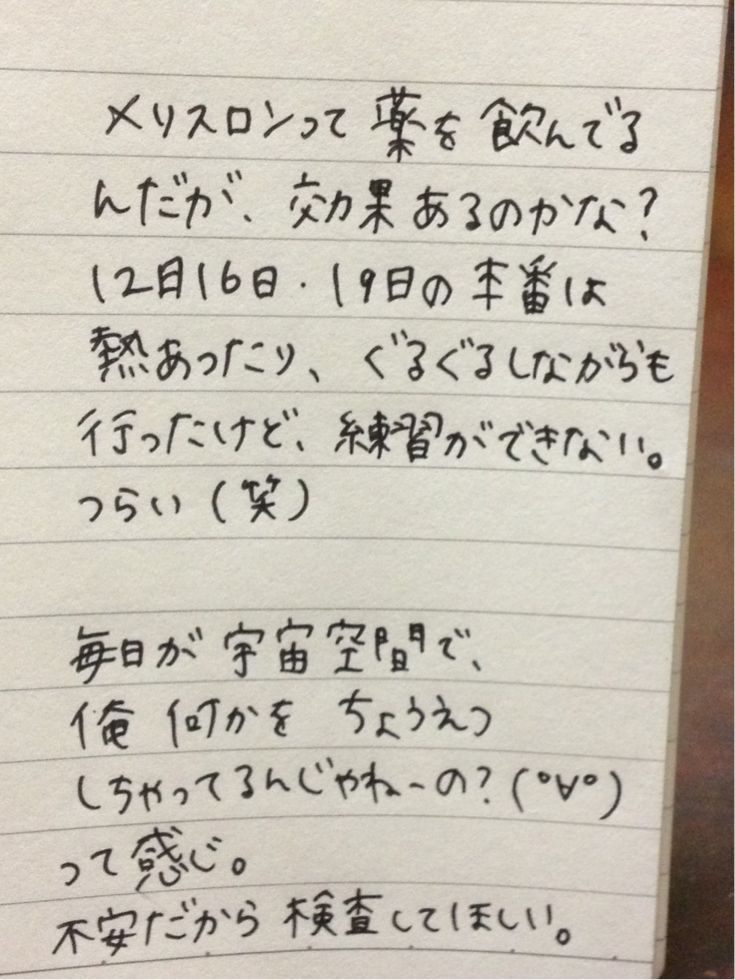 メリスロンって薬を飲んでる
んだが、効果あるのかな?
12月16日・19日の本番は
熱あったり、ぐるぐるしながらも
行ったけど、練習ができない。
つらい(笑)
毎日が宇宙空間で、
俺何かをちょうえつ
しちゃってるんじゃねーの?(°∀°)
って感じ。
不安だから検査してほしい。